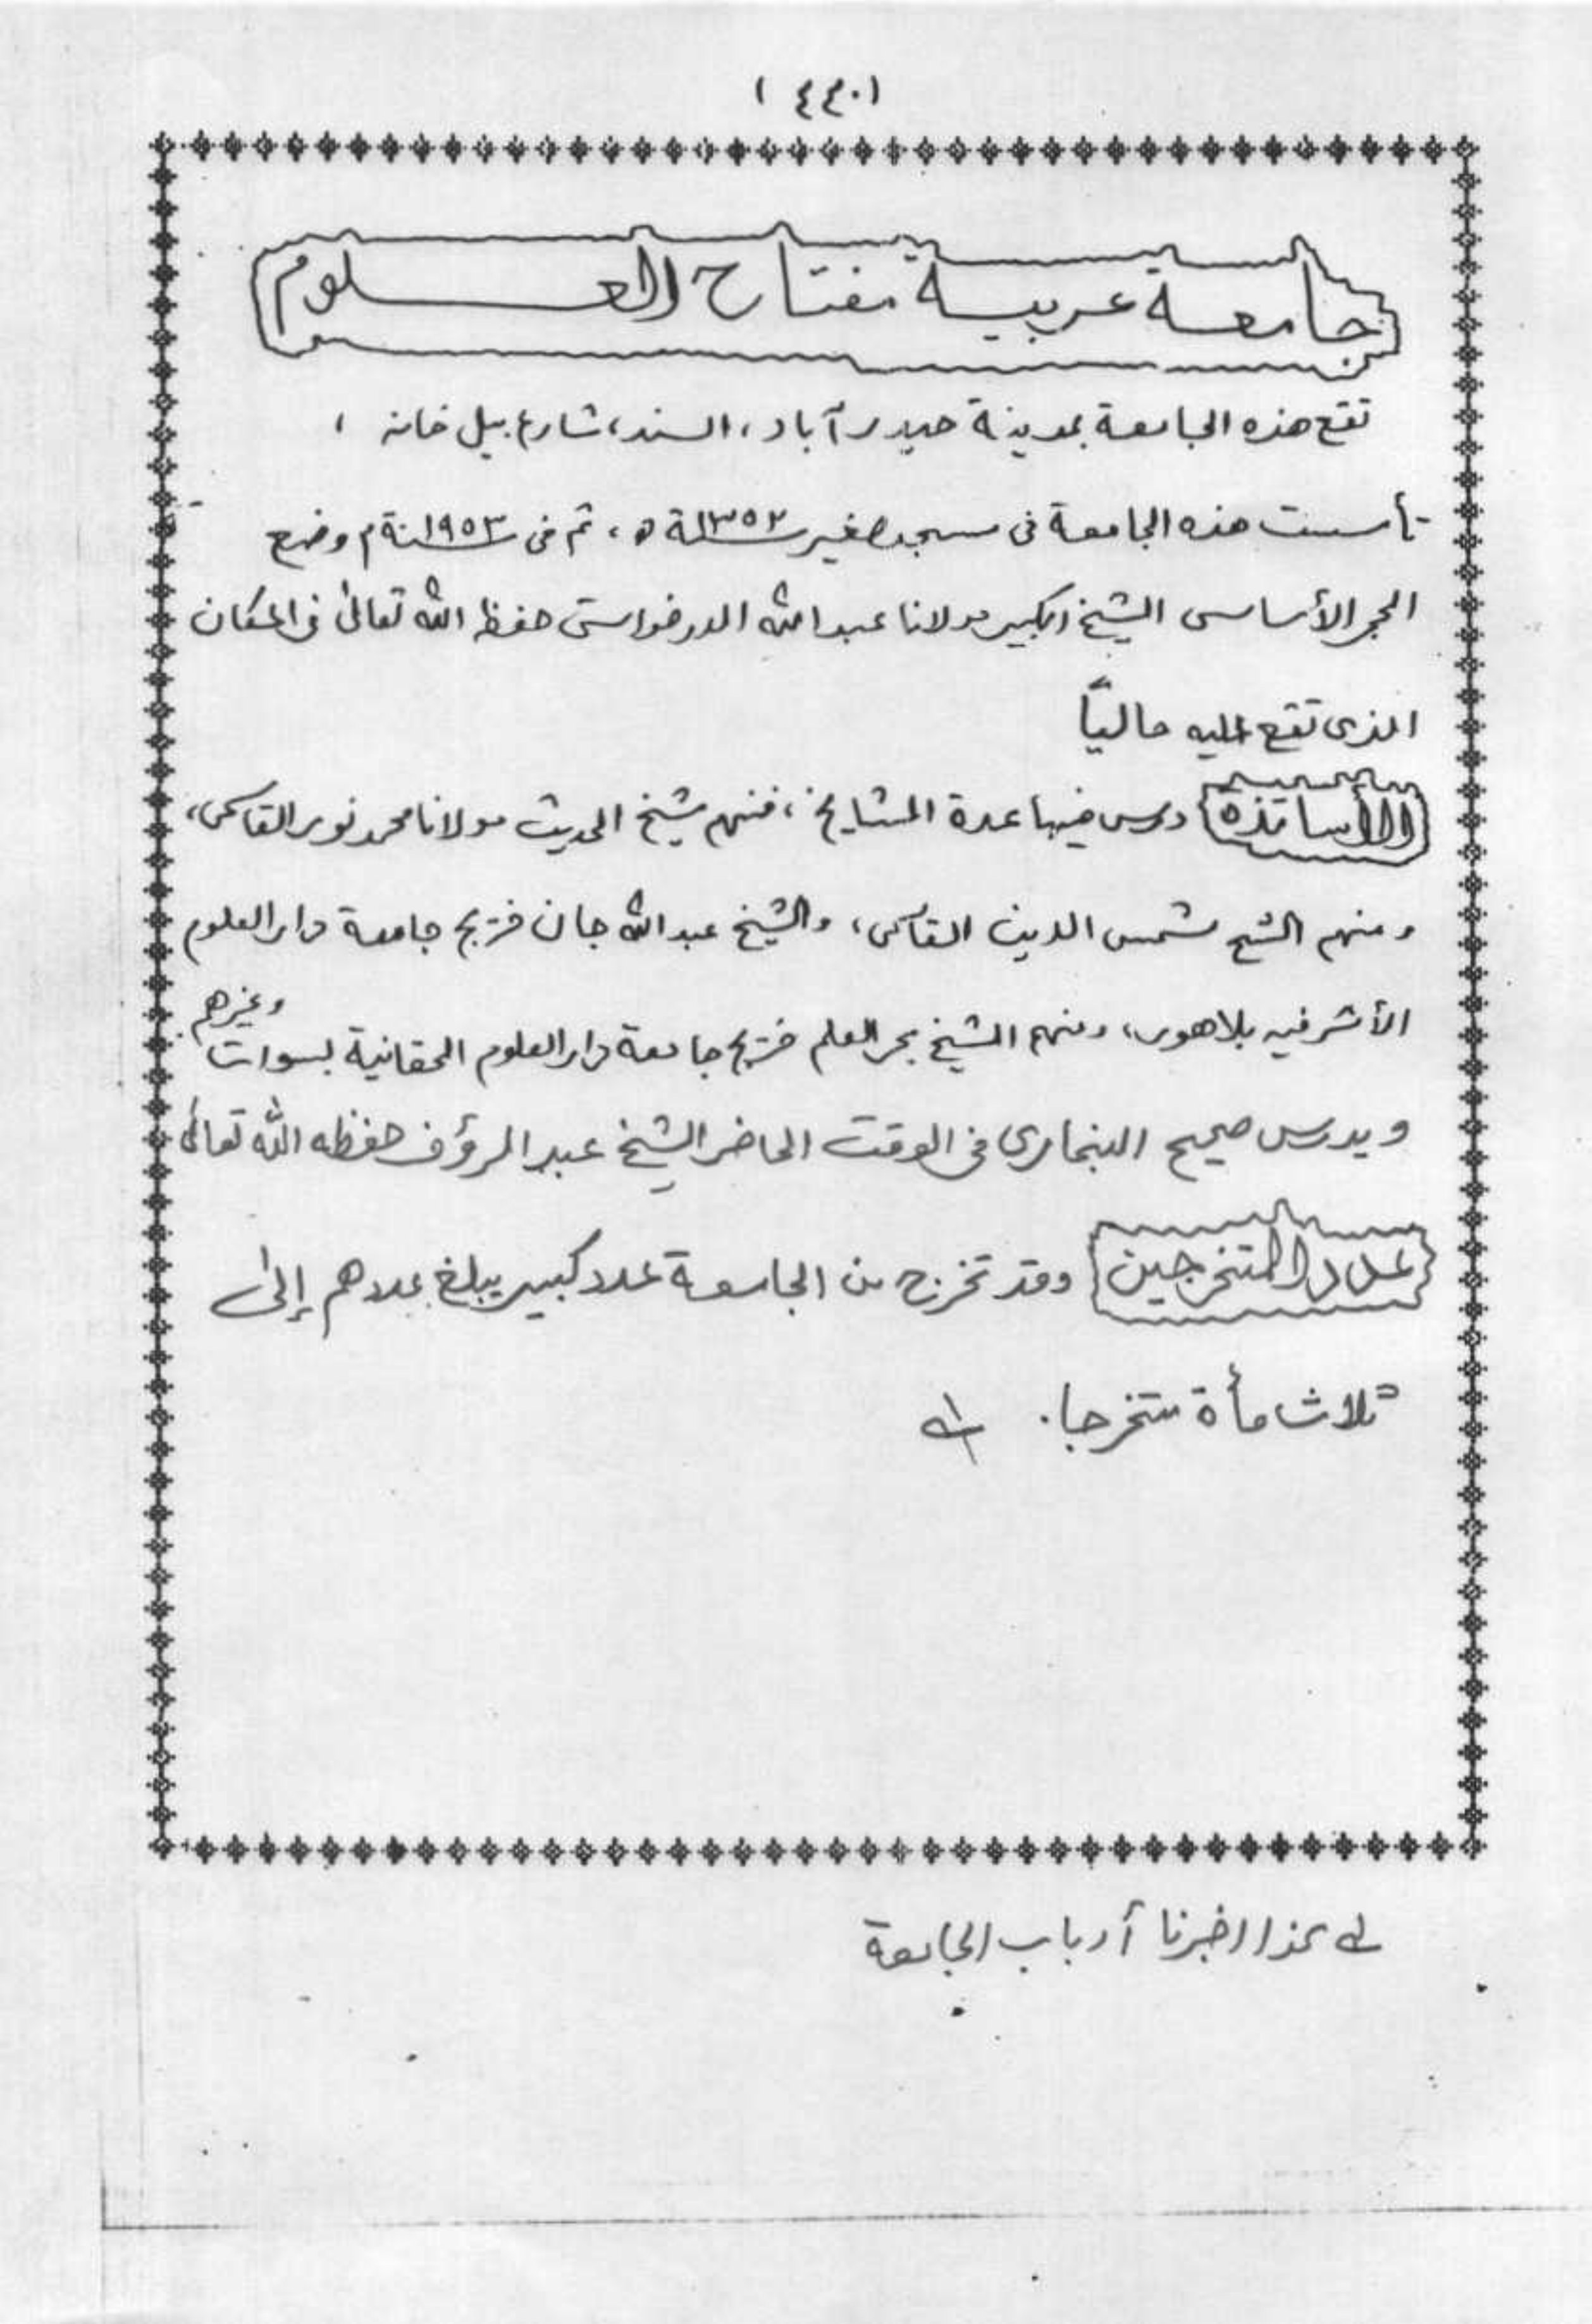 (٤٣٠)
جامعة عربية مفتاح العلوم
تقع هذه الجامعة بمدينة حيدرآباد، السند، شارع بيل خانه ،
تأسست هذه الجامعة فى مسجد صغير سنة ١٣٥٢ه ، ثم فى سنة ١٩٥٣م وضع
الحجر الأساسى الشيخ الكبير مولانا عبد الله الدرخواستى حفظ الله تعالىٰ فى المكان
الذى تقع اليه حالياً
الأساتذة درس فيها عدة المشايخ ، فمنهم شيخ الحديث مولانا محمد نور القاسمى،
ومنهم الشيخ شمس الدين القاسمى، والشيخ عبد الله جان خريج جامعة دار العلوم
الأشرفيه بلاهور، ومنهم الشيخ بحر العلم خريج جامعة دار العلوم الحقانية بسوات وغيرهم
ويدرس صحيح البخارى فى الوقت الحاضر الشيخ عبد الرؤف حفظه الله تعالىٰ
عدد المتخرجين وقد تخرج من الجامعة عدد كبير يبلغ عددهم إلىٰ
ثلاث مأة متخرجا .
اخبرنا أرباب الجامعة